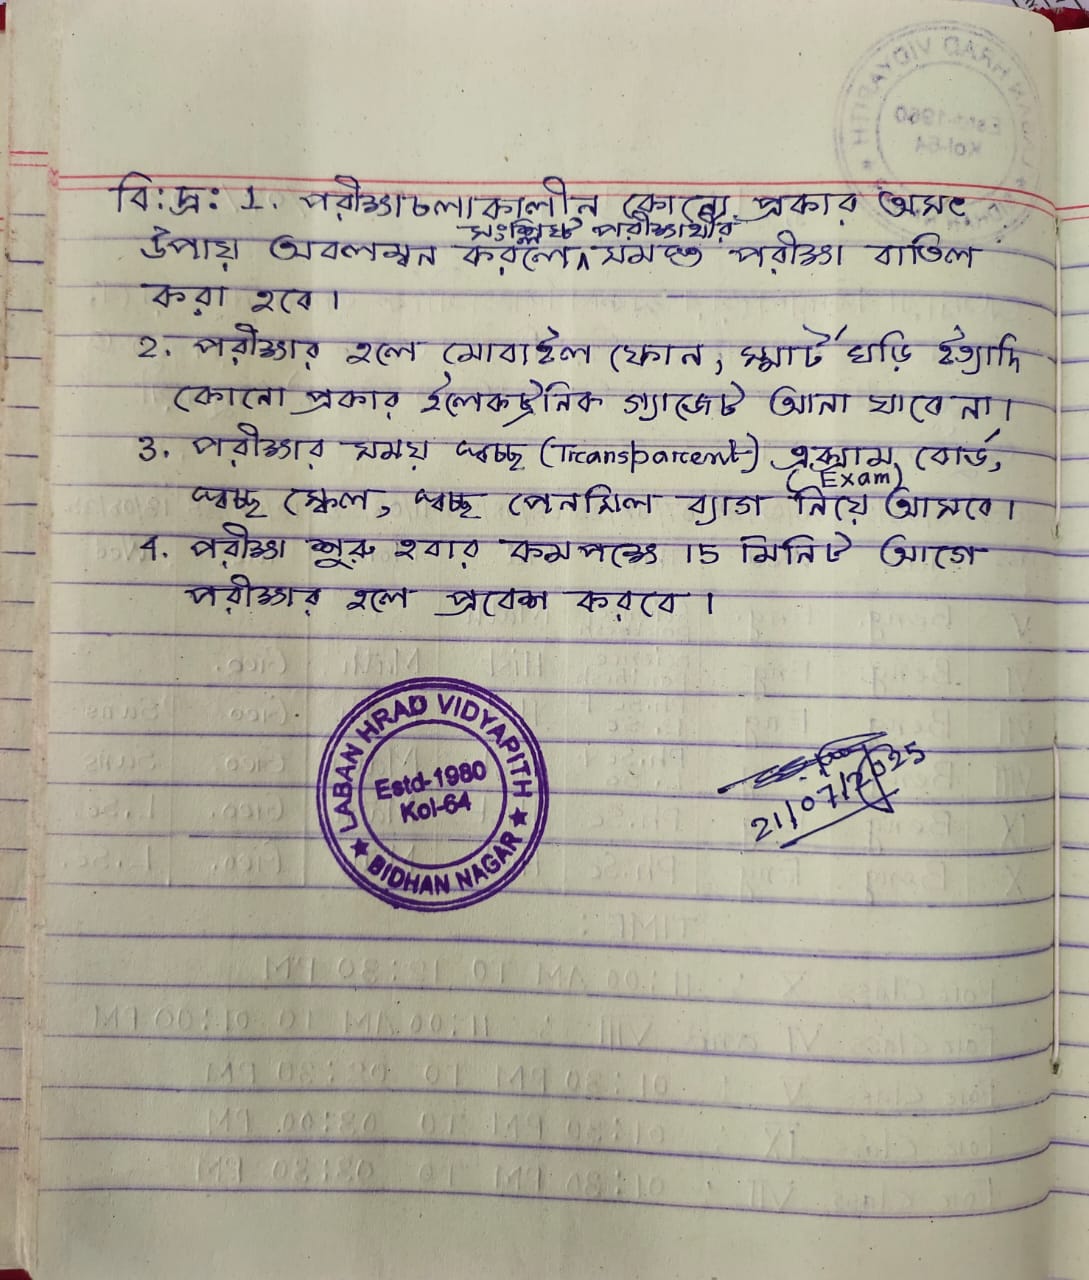 বি:দ্র: 1. পরীক্ষাচলাকালীন কোনো প্রকার অসৎ
উপায় অবলম্বন করলে ^ সংশ্লিষ্ট পরীক্ষার্থীর সমস্ত পরীক্ষা বাতিল
করা হবে।
2. পরীক্ষার হলে মোবাইল ফোন, স্মার্ট ঘড়ি ইত্যাদি
কোনো প্রকার ইলেকট্রনিক গ্যাজেট আনা যাবে না।
3. পরীক্ষার সময় স্বচ্ছ (Transparent) এক্সাম বোর্ড,
(Exam)
স্বচ্ছ স্কেল, স্বচ্ছ পেনসিল ব্যাগ নিয়ে আসবে।
4. পরীক্ষা শুরু হবার কমপক্ষে 15 মিনিট আগে
পরীক্ষার হলে প্রবেশ করবে।
LABAN HRAD VIDYAPITH
Estd-1980
Kol-64
★ BIDHAN NAGAR ★
21/07/2025